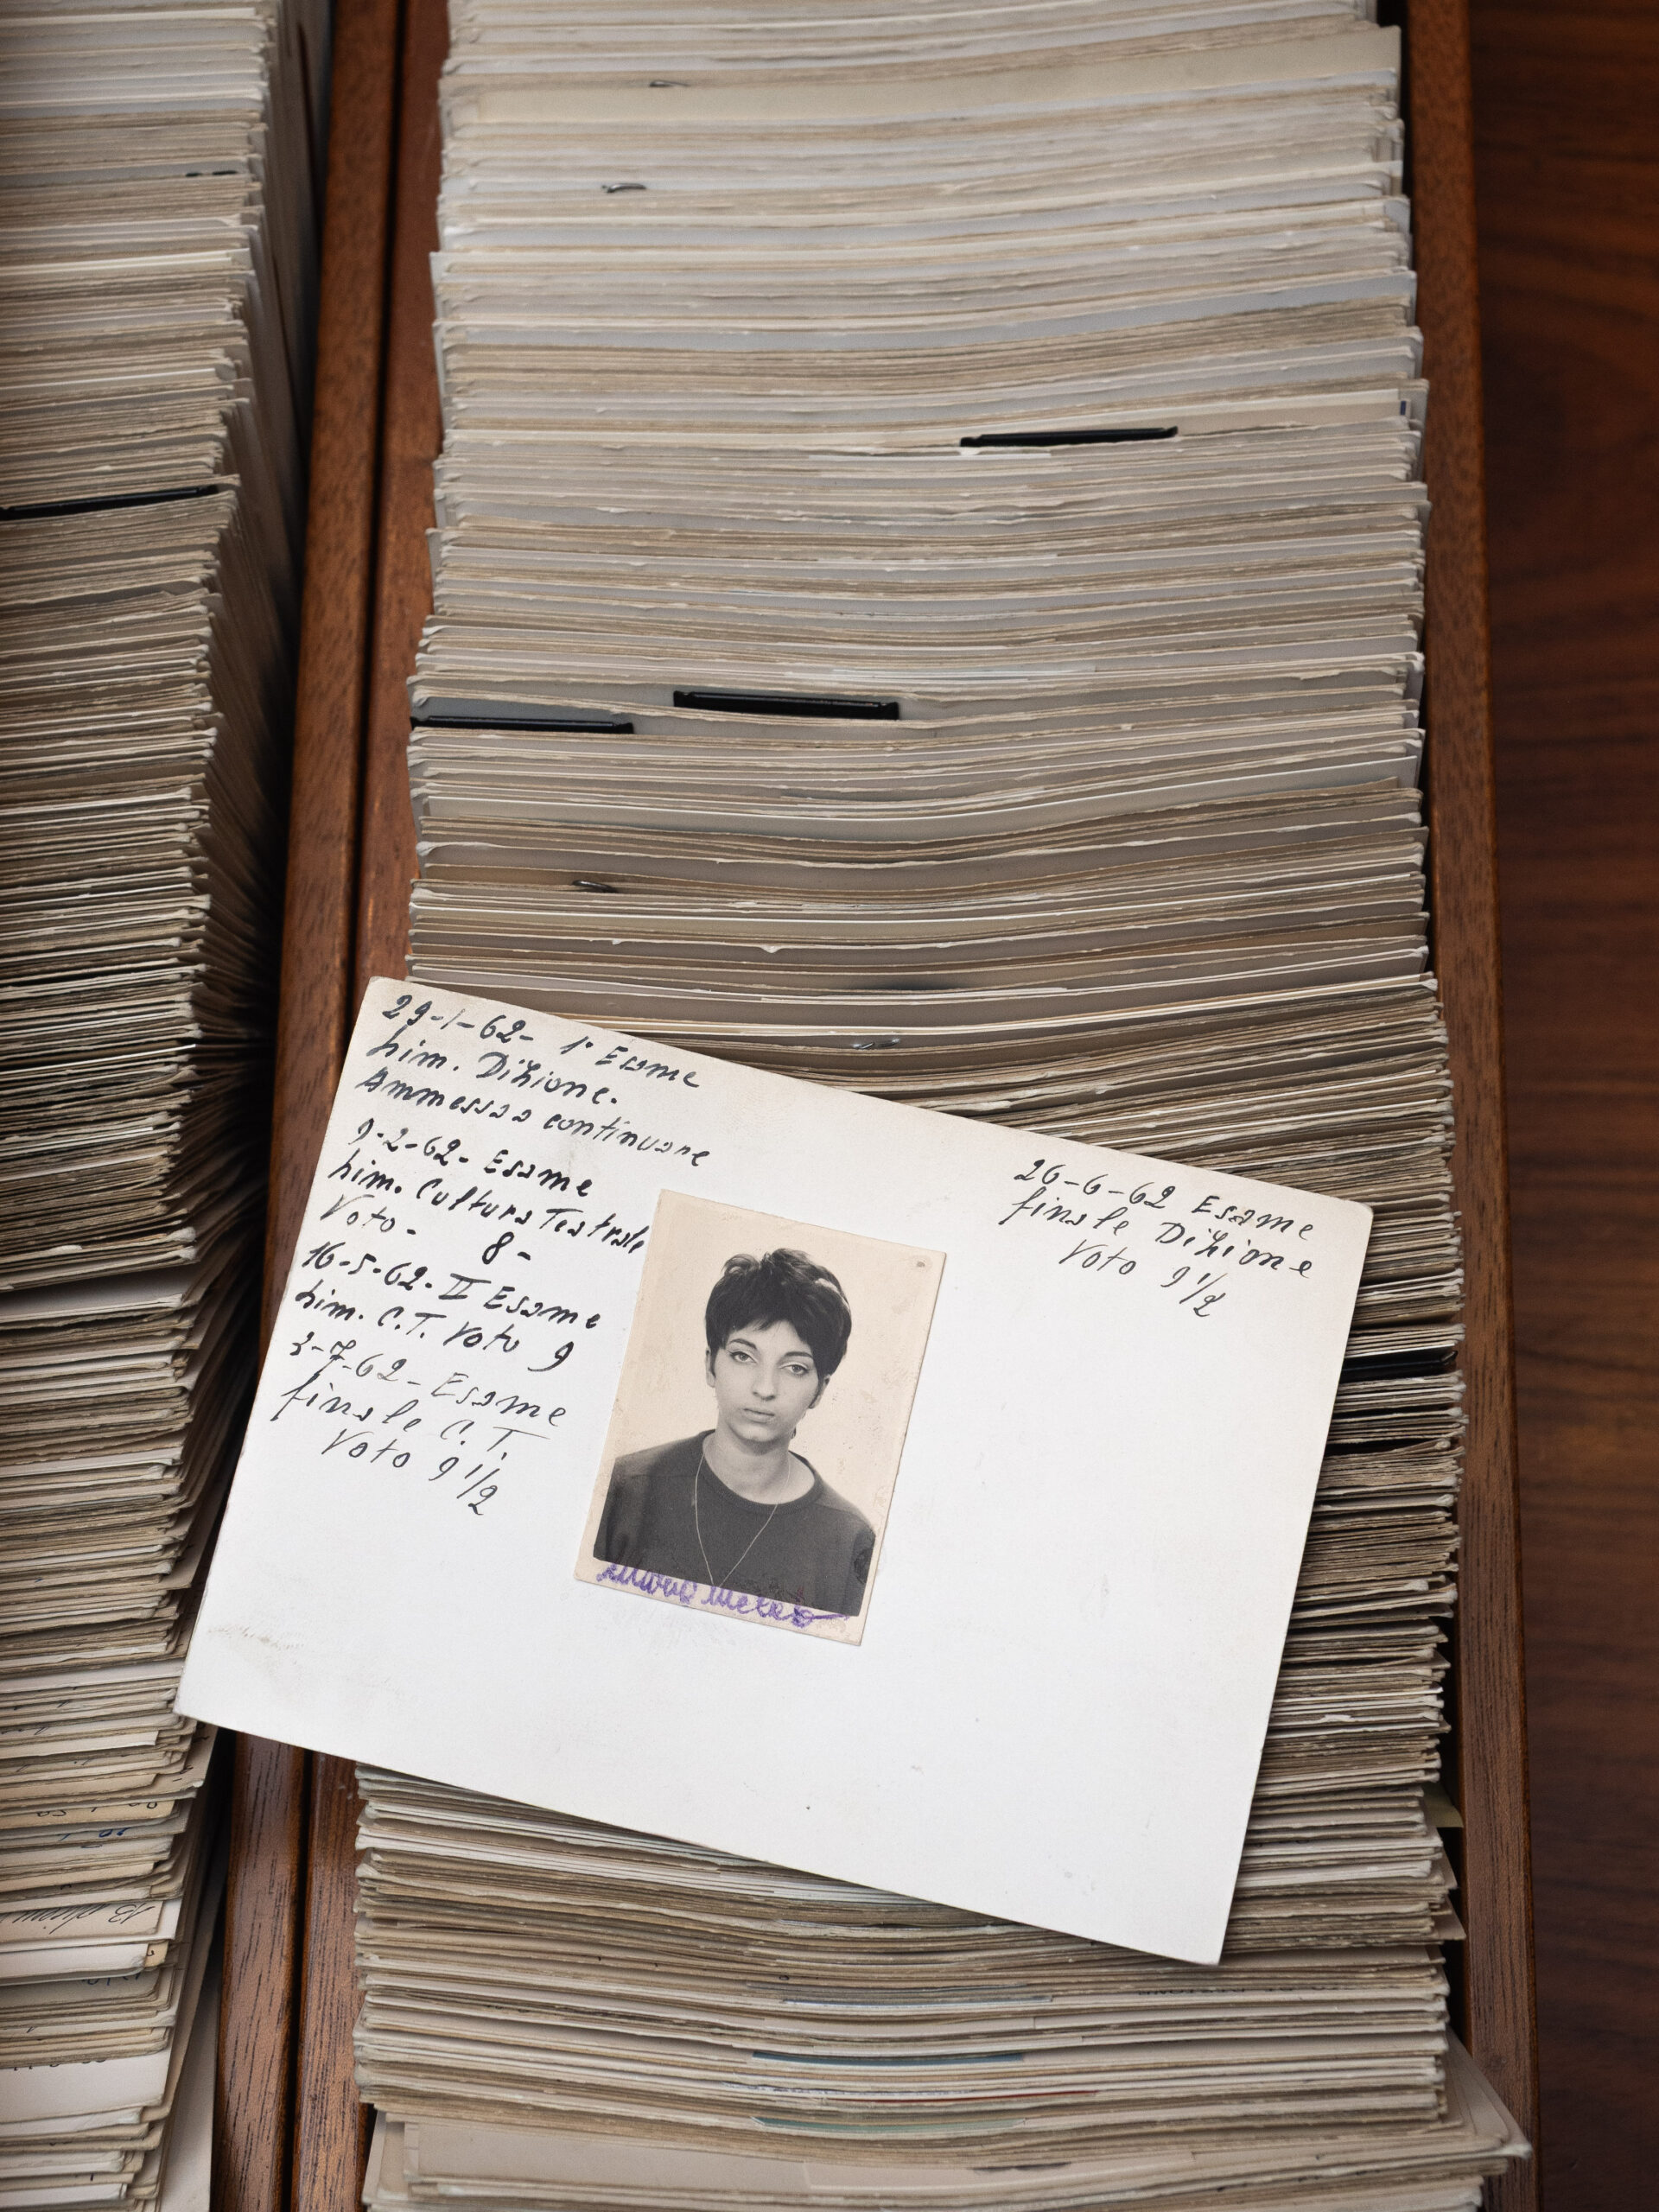 29-1-62- 1° Esame
Lim. Dizione.
Ammessa a continuare
9-2-62- Esame
Lim. Cultura Teatrale
Voto - 8-
16-5-62- II Esame
Lim. C.T. Voto 9
3-7-62- Esame
finale C.T.
Voto 9 1/2
26-6-62 Esame
finale Dizione
Voto 9 1/2